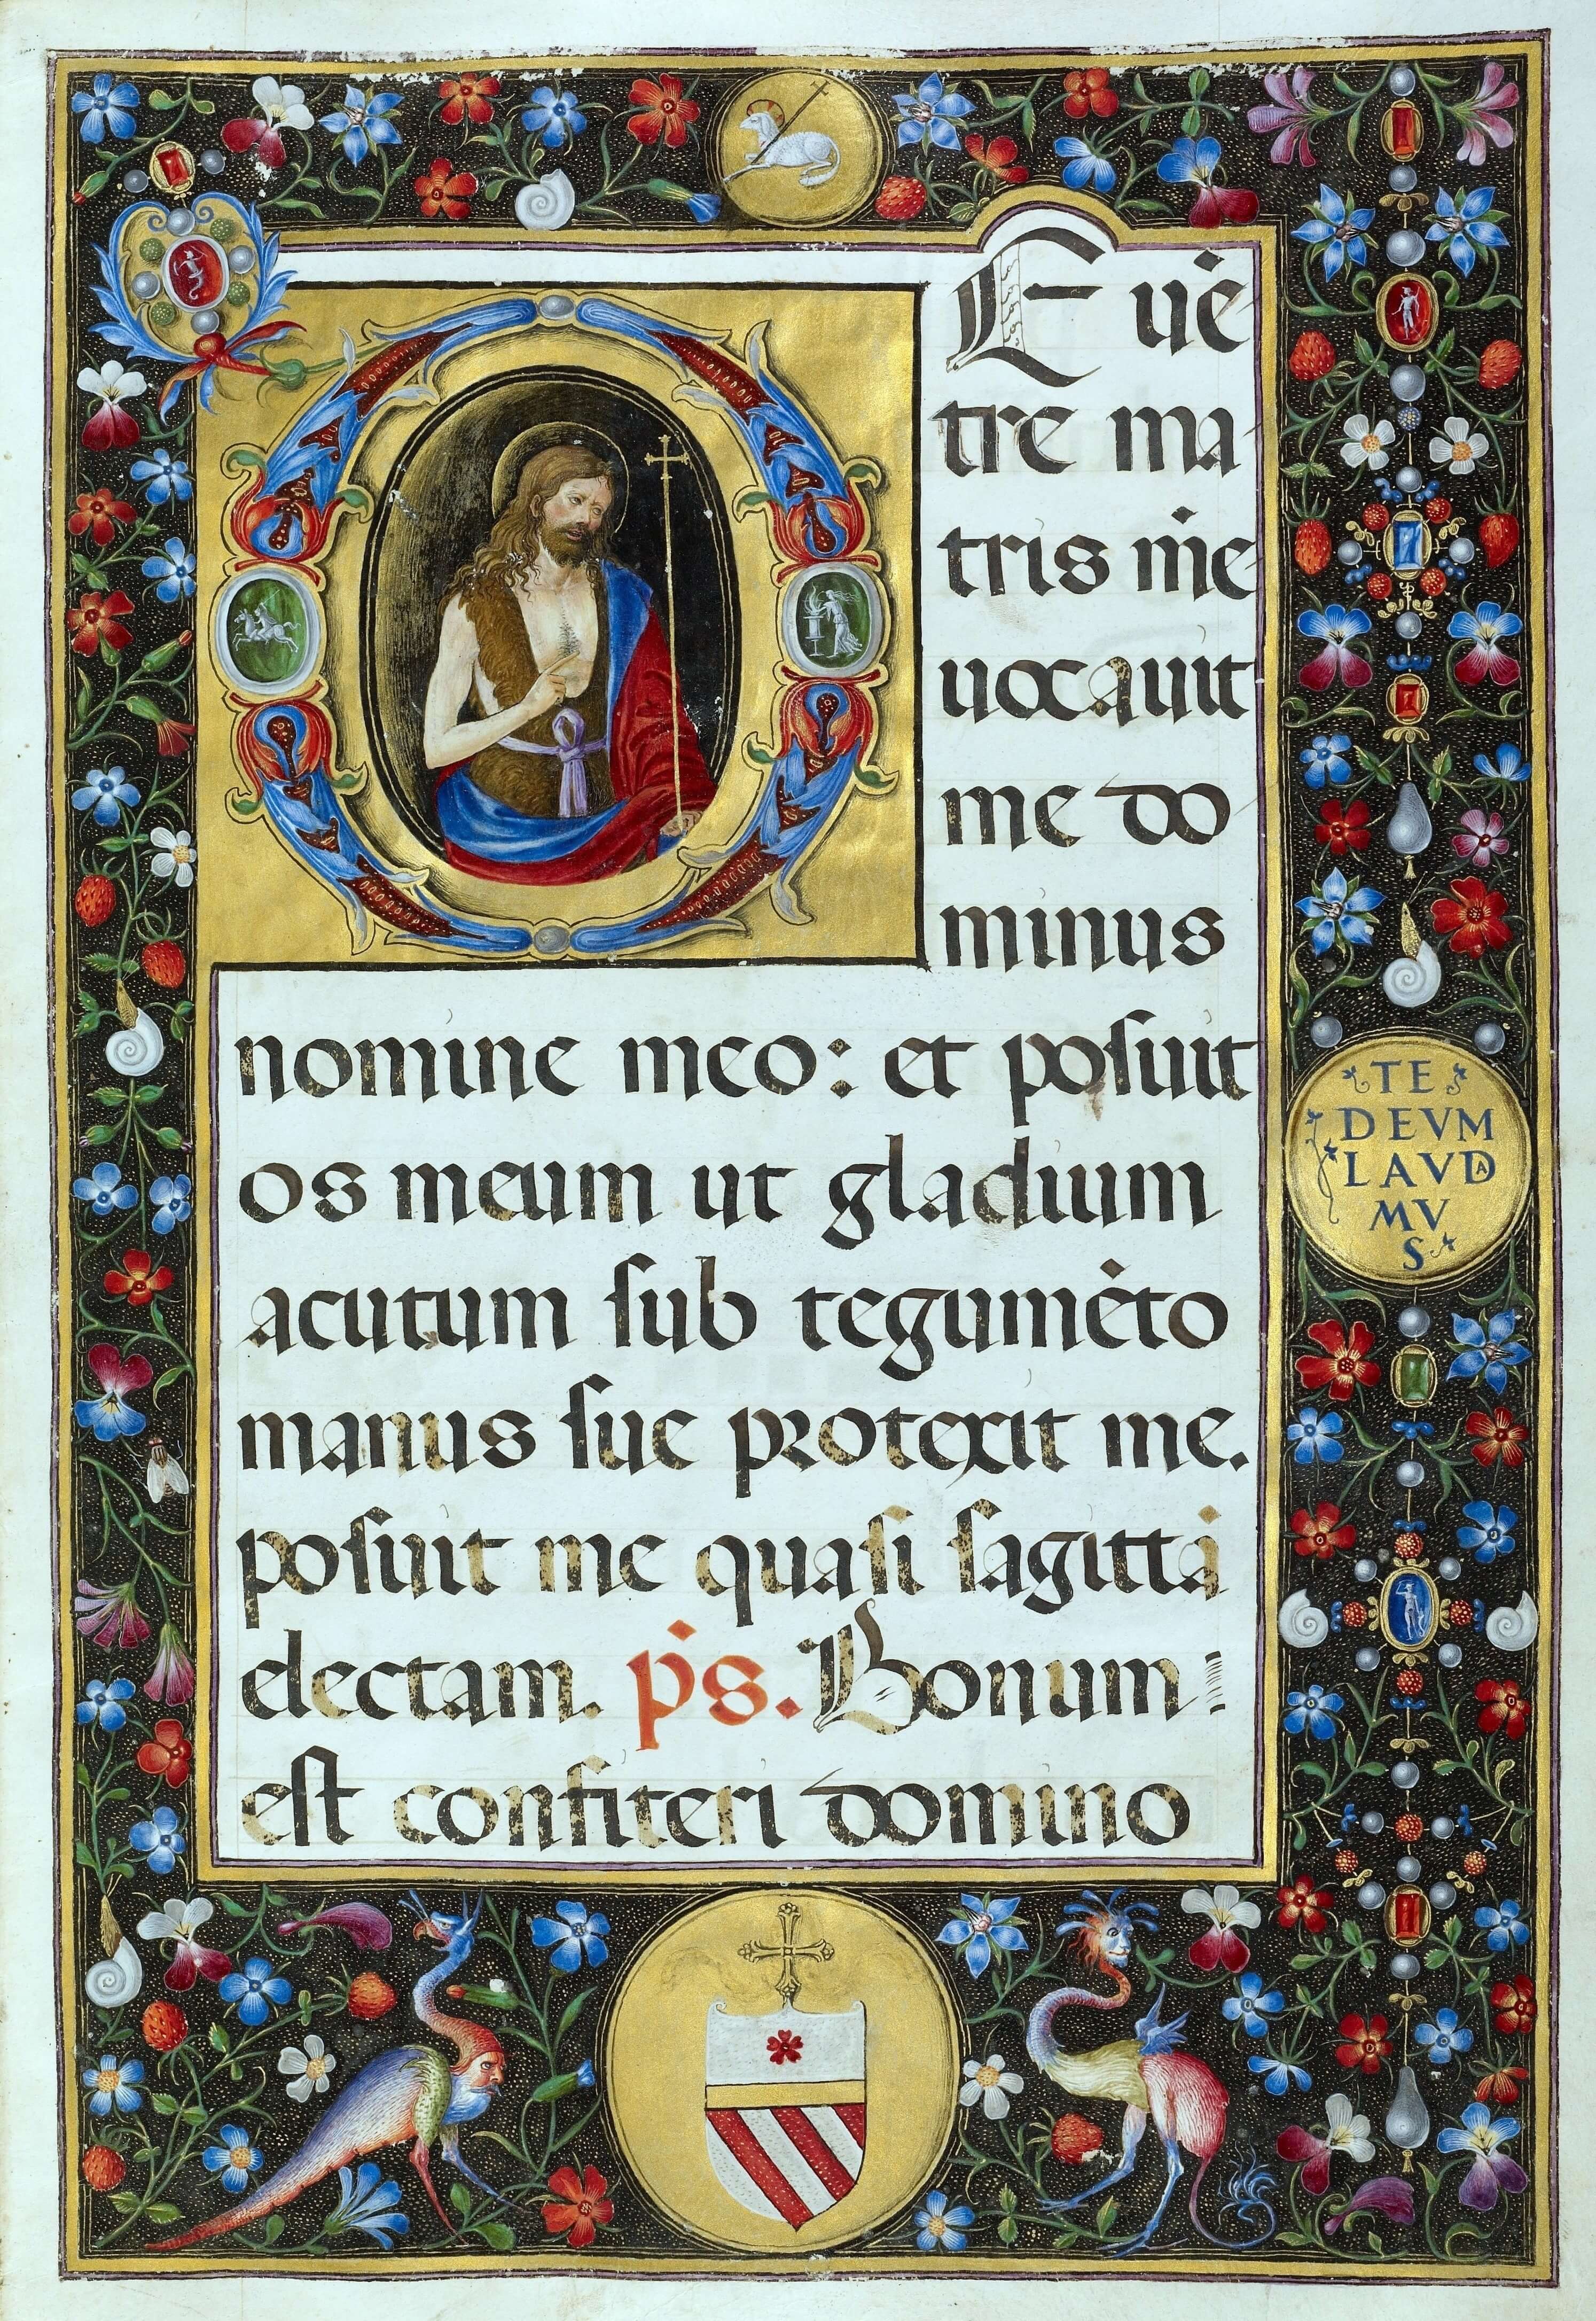 DE uē
tre ma
tris mēe
uocauit
me do
minus
nomine meo: et posuit
os meum ut gladium
acutum sub tegumēto
manus sue protexit me.
posuit me quasi sagittā
electam. ps. Bonum
est confiteri domino
TE
DEVM
LAVDA
MV
S